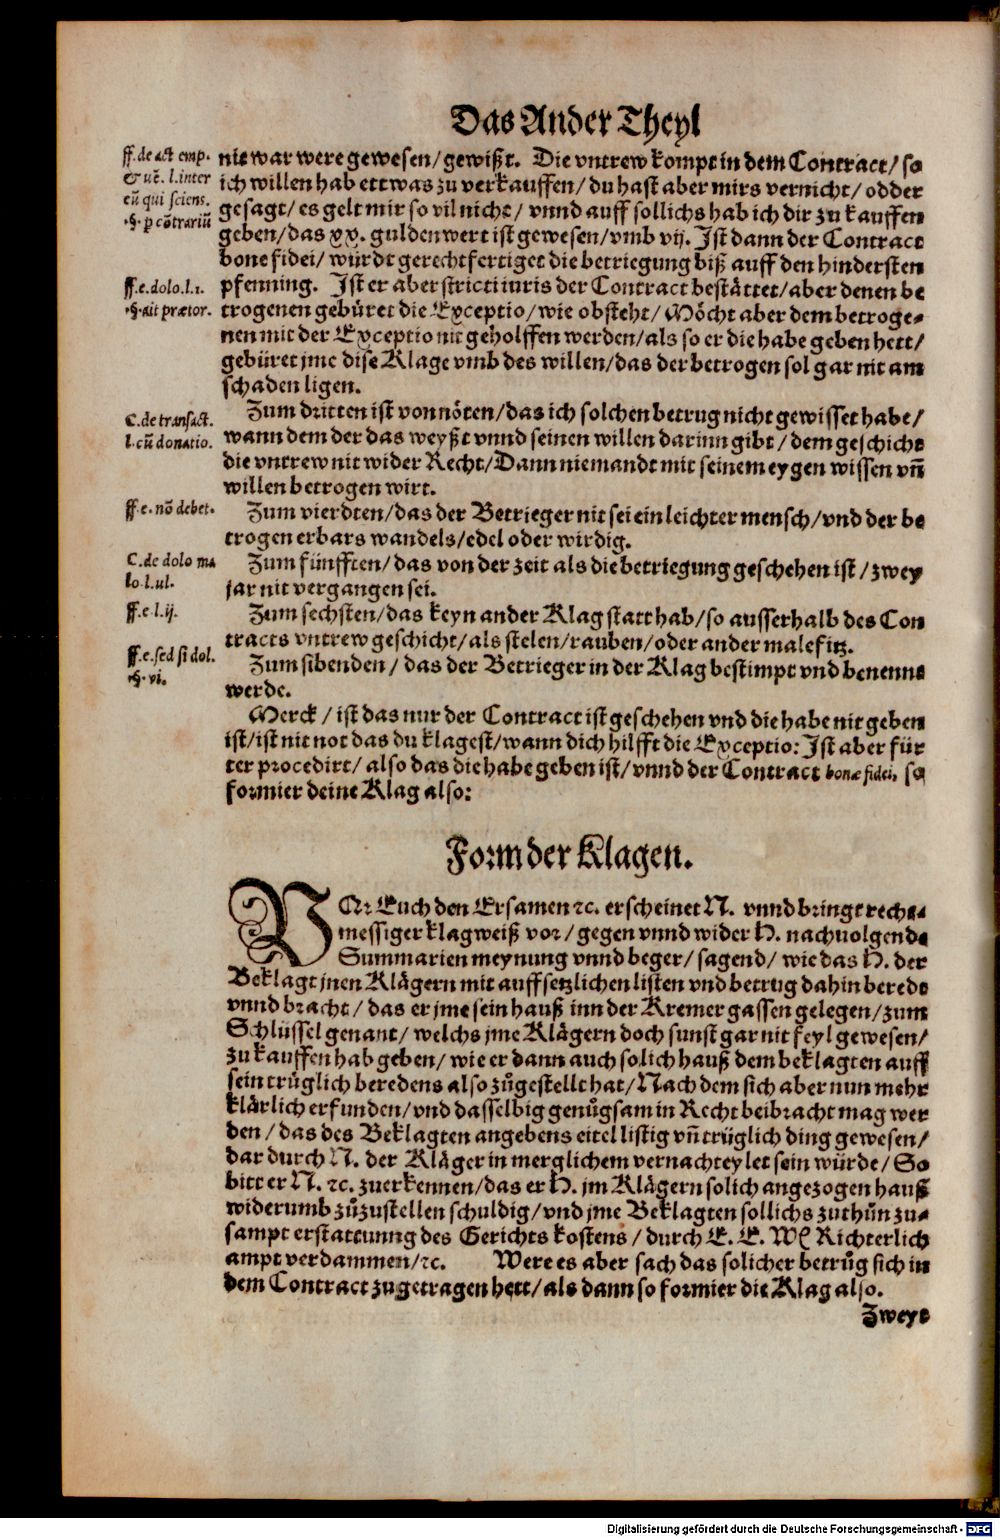 Das Ander Theyl
ff. de act emp.
& uẽ. l. inter
eũ qui sciens.
§. p cõtrariũ
ff. e. dolo. l. 1.
§. ait prætor.
C. de transact.
l. cũ donatio.
ff. e. nõ debet.
C. de dolo ma
lo. l. ul.
ff. e l. ij.
ff. e. sed si dol.
§. vi.
nit war were gewesen / gewißt. Die vntrew kompt in dem Contract / so
ich willen hab ettwas zu verkauffen / du hast aber mirs vernicht / odder
gesagt / es gelt mir so vil nicht / vnnd auff sollichs hab ich dir zu kauffen
geben / das xx. gulden wert ist gewesen / vmb vij. Ist dann der Contract
bone fidei / würdt gerechtfertiget die betriegung biß auff den hindersten
pfenning. Ist er aber stricti iuris der Contract bestättet / aber denen be
trogenen gebüret die Exceptio / wie obsteht / Möcht aber dem betroge⸗
nen mit der Exceptio nit geholffen werden / als so er die habe geben hett /
gebüret jme dise Klage vmb des willen / das der betrogen sol gar nit am
schaden ligen.
Zum dritten ist von nöten / das ich solchen betrug nicht gewisset habe /
wann dem der das weyßt vnnd seinen willen darinn gibt / dem geschicht
die vntrew nit wider Recht / Dann niemandt mit seinem eygen wissen vñ
willen betrogen wirt.
Zum vierdten / das der Betrieger nit sei ein leichter mensch / vnd der be
trogen erbars wandels / edel oder wirdig.
Zum fünfften / das von der zeit als die betriegung geschehen ist / zwey
jar nit vergangen sei.
Zum sechsten / das keyn ander Klag statt hab / so ausserhalb des Con
tracts vntrew geschicht / als stelen / rauben / oder ander malefitz.
Zum sibenden / das der Betrieger in der Klag bestimpt vnd benennt
werde.
Merck / ist das nur der Contract ist geschehen vnd die habe nit geben
ist / ist nit not das du klagest / wann dich hilfft die Exceptio: Ist aber für
ter procedirt / also das die habe geben ist / vnnd der Contract bonæ fidei, so
formier deine Klag also:
Form der Klagen.
VOr Euch den Ersamen ꝛc. erscheinet N. vnnd bringt recht⸗
messiger klagweiß vor / gegen vnnd wider H. nachuolgende
Summarien meynung vnnd beger / sagend / wie das H. der
Beklagt jnen Klägern mit auffsetzlichen listen vnd betrug dahin beredt
vnnd bracht / das er jme sein hauß inn der Kremer gassen gelegen / zum
Schlüssel genant / welchs jme Klägern doch sunst gar nit feyl gewesen /
zu kauffen hab geben / wie er dann auch solich hauß dem beklagten auff
sein trüglich beredens also zůgestellt hat / Nach dem sich aber nun mehr
klärlich erfunden / vnd dasselbig genůgsam in Recht beibracht mag wer
den / das des Beklagten angebens eitel listig vñ trüglich ding gewesen /
dardurch N. der Kläger in merglichem vernachteylet sein würde / So
bitt er N. ꝛc. zuerkennen / das er H. jm Klägern solich angezogen hauß
widerumb zůzustellen schuldig / vnd jme Beklagten sollichs zuthůn zu⸗
sampt erstattunng des Gerichts kostens / durch E. E. W. Richterlich
ampt verdammen / ꝛc. Were es aber sach das solicher betrůg sich in
dem Contract zugetragen hett / als dann so formier die Klag also.
Zweyt
Digitalisierung gefördert durch die Deutsche Forschungsgemeinschaft - DFG